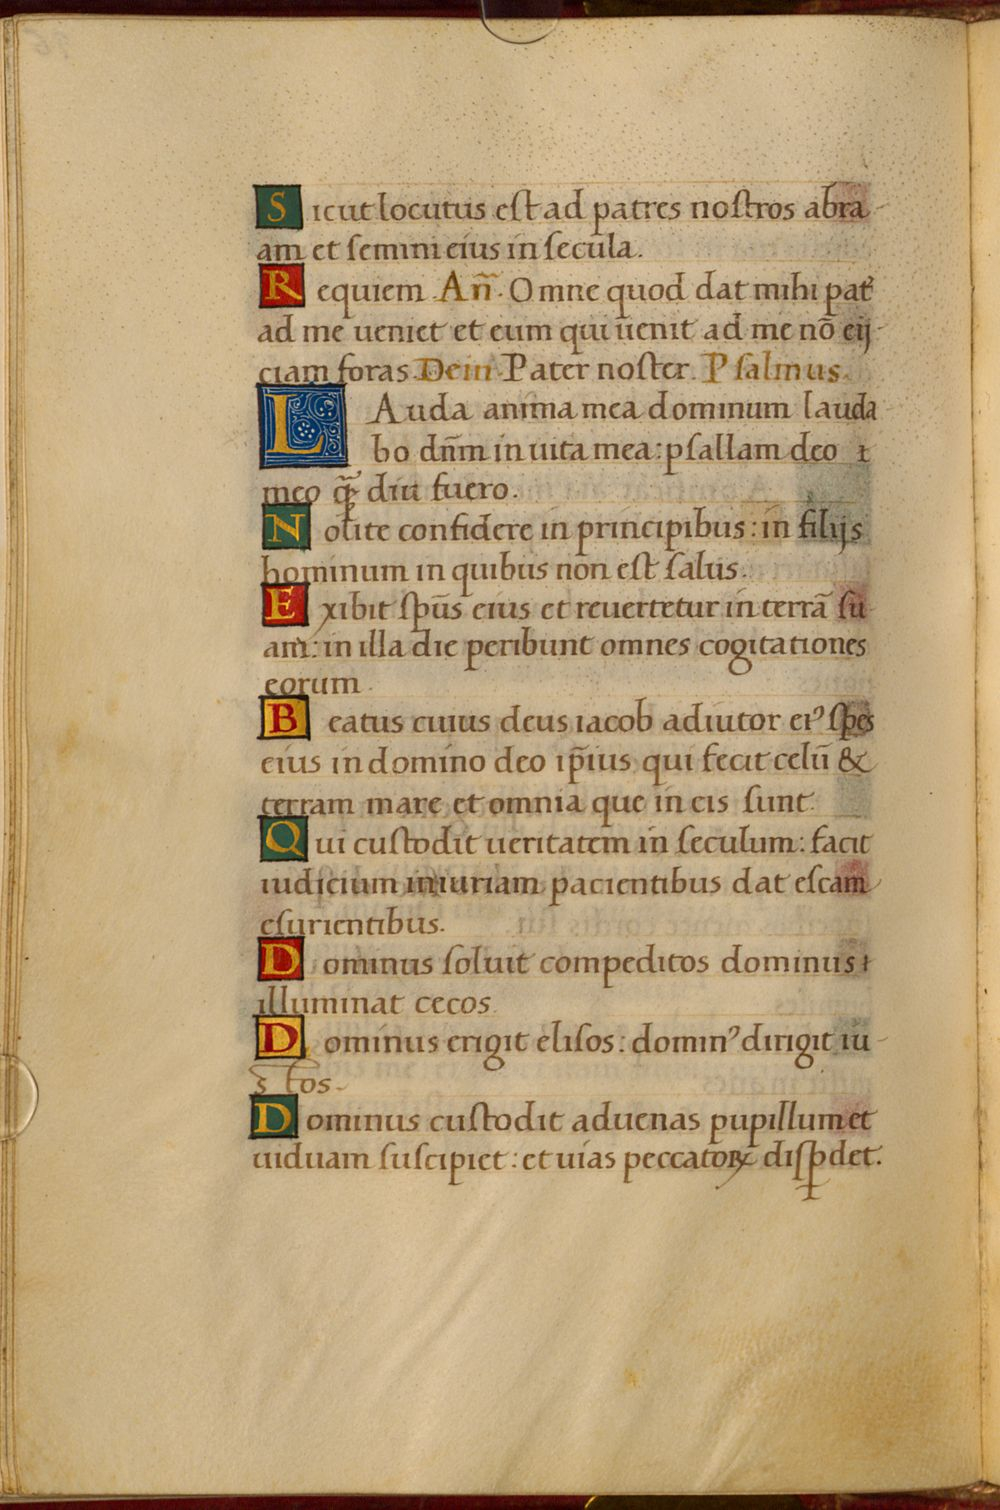 Sicut locutus eſt ad patres noſtros abra-
am et ſemini eius in ſecula.
Requiem Añ. Omne quod dat mihi pat᷑
ad me ueniet et eum qui uenit ad me nō eij-
ciam foras. Dein Pater noſter. Pſalmus.
LAuda anima mea dominum lauda
bo dñm in uita mea: pſallam deo
meo q̃ diu fuero.
Nolite confidere in principibus: in filijs
hominum in quibus non eſt ſalus.
Exibit ſpūs eius et reuertetur in terrā ſu-
am: in illa die peribunt omnes cogitationes
eorum.
Beatus cuius deus iacob adiutor eiꝰ ſpes
eius in domino deo ip̄ius qui fecit celū &
terram mare et omnia que in eis ſunt.
Qui cuſtodit ueritatem in ſeculum: facit
iudicium iniuriam pacientibus dat eſcam
eſurientibus.
Dominus ſoluit compeditos dominus
illuminat cecos.
Dominus erigit eliſos: dominꝰ dirigit iu-
ſtos-
Dominus cuſtodit aduenas pupillum et
uiduam ſuſcipiet: et uias peccatoꝝ diſꝑdet.